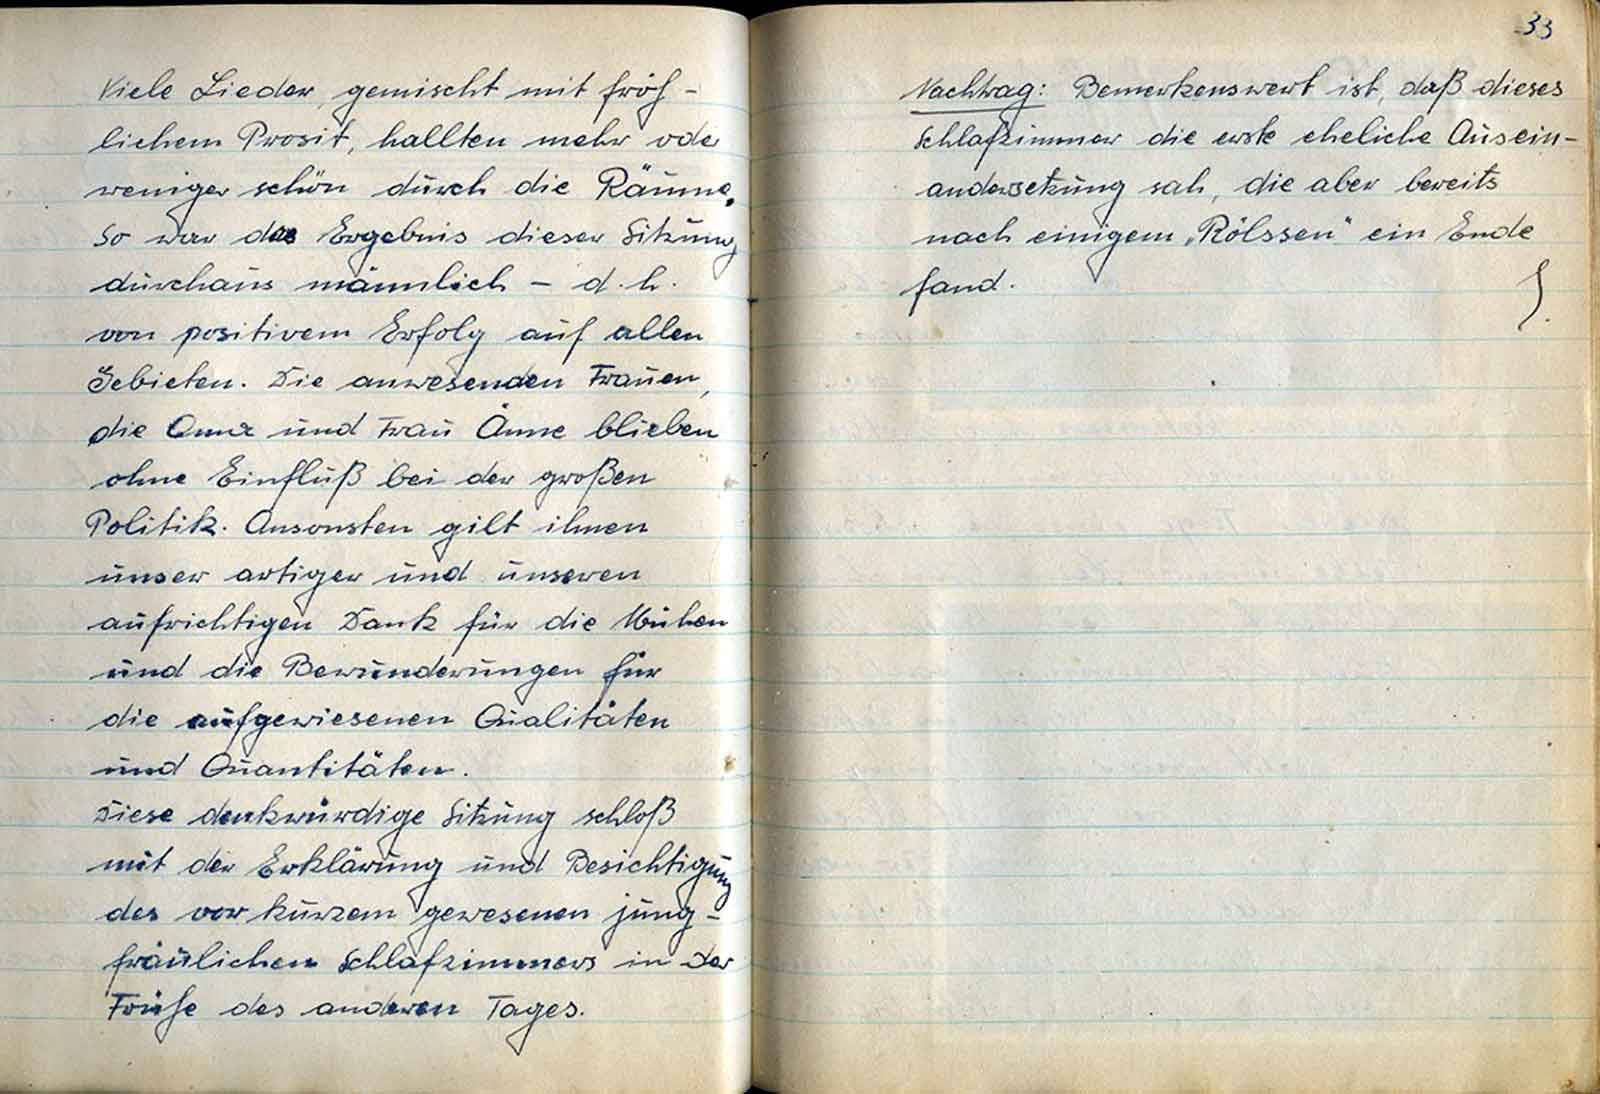 Viele Lieder, gemischt mit fröh-
lichem Prosit, hallten mehr oder
weniger schön durch die Räume.
So war das Ergebnis dieser Sitzung
durchaus männlich - d.h.
von positivem Erfolg auf allen
Gebieten. Die anwesenden Frauen,
die Anna und Frau Änne blieben
ohne Einfluß bei der großen
Politik. Ansonsten gilt ihnen
unser artiger und unseren
aufrichtigen Dank für die Mühen
und die Bewunderungen für
die aufgewiesenen Qualitäten
und Quantitäten.
Diese denkwürdige Sitzung schloß
mit der Erklärung und Besichtigung
des vor kurzem gewesenen jung-
fräulichen Schlafzimmers in der
Frühe des anderen Tages.
33
Nachtrag: Bemerkenswert ist, daß dieses
Schlafzimmer die erste eheliche Ausein-
andersetzung sah, die aber bereits
nach einigem „Rölssen" ein Ende
fand.